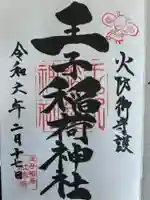 火防御守護
王子稲荷神社
令和六年二月十七日